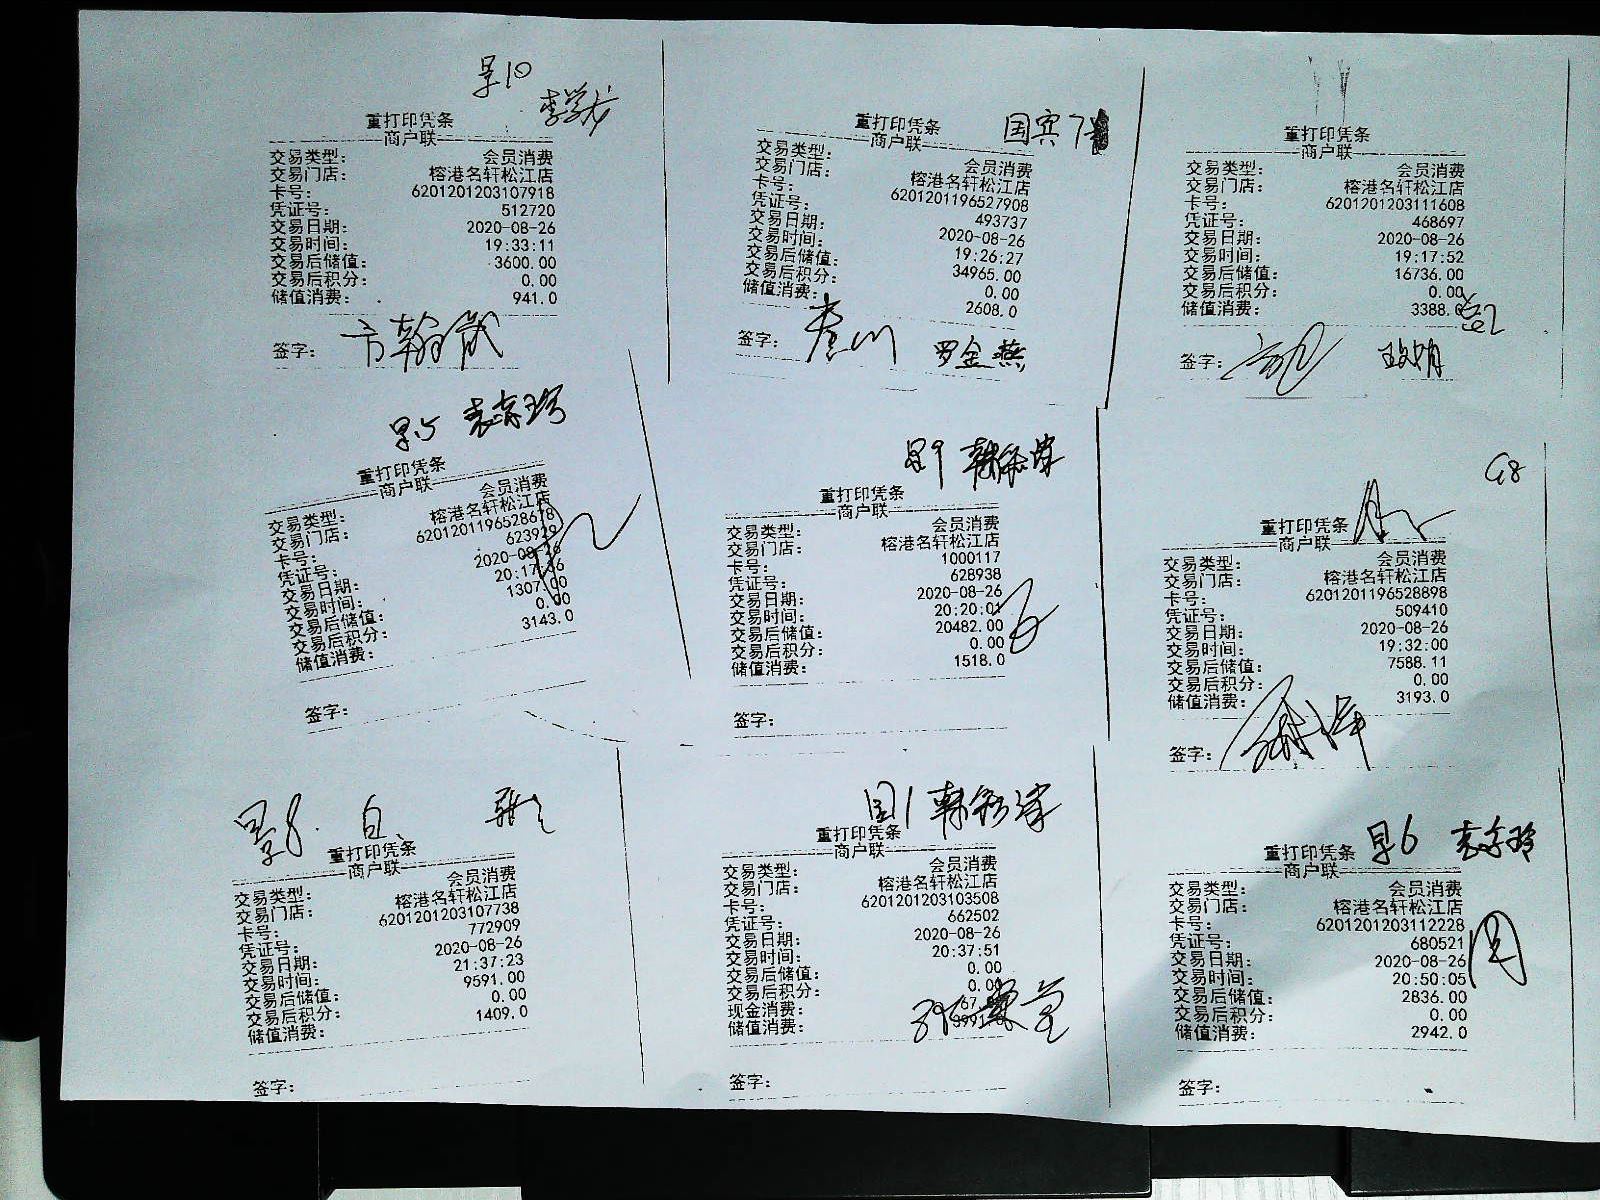 早10
李学龙
重打印凭条
商户联
交易类型： 会员消费
交易门店： 榕港名轩松江店
卡号： 6201201203107918
凭证号： 512720
交易日期： 2020-08-26
交易时间： 19:33:11
交易后储值： 3600.00
交易后积分： 0.00
储值消费： 941.0
签字：
国宾7
重打印凭条
商户联
交易类型： 会员消费
交易门店： 榕港名轩松江店
卡号： 6201201196527908
凭证号： 493737
交易日期： 2020-08-26
交易时间： 19:26:27
交易后储值： 34965.00
交易后积分： 0.00
储值消费： 2608.0
签字： 罗金燕
重打印凭条
商户联
交易类型： 会员消费
交易门店： 榕港名轩松江店
卡号： 6201201203111608
凭证号： 468697
交易日期： 2020-08-26
交易时间： 19:17:52
交易后储值： 16736.00
交易后积分： 0.00
储值消费： 3388.0
签字：
重打印凭条
商户联
交易类型： 会员消费
交易门店： 榕港名轩松江店
卡号： 6201201196528678
凭证号： 623929
交易日期： 2020-08-26
交易时间： 20:17
交易后储值： 1307.00
交易后积分： 0.00
储值消费： 3143.0
签字：
重打印凭条
商户联
交易类型： 会员消费
交易门店： 榕港名轩松江店
卡号： 1000117
凭证号： 628938
交易日期： 2020-08-26
交易时间： 20:20:01
交易后储值： 20482.00
交易后积分： 0.00
储值消费： 1518.0
签字：
G8
重打印凭条
商户联
交易类型： 会员消费
交易门店： 榕港名轩松江店
卡号： 6201201196528898
凭证号： 509410
交易日期： 2020-08-26
交易时间： 19:32:00
交易后储值： 7588.11
交易后积分： 0.00
储值消费： 3193.0
签字：
重打印凭条
商户联
交易类型： 会员消费
交易门店： 榕港名轩松江店
卡号： 6201201203107738
凭证号： 772909
交易日期： 2020-08-26
交易时间： 21:37:23
交易后储值： 9591.00
交易后积分： 0.00
储值消费： 1409.0
签字：
国1
重打印凭条
商户联
交易类型： 会员消费
交易门店： 榕港名轩松江店
卡号： 6201201203103508
凭证号： 662502
交易日期： 2020-08-26
交易时间： 20:37:51
交易后储值： 0.00
交易后积分： 0.00
现金消费：
储值消费：
签字：
早6
重打印凭条
商户联
交易类型： 会员消费
交易门店： 榕港名轩松江店
卡号： 6201201203112228
凭证号： 680521
交易日期： 2020-08-26
交易时间： 20:50:05
交易后储值： 2836.00
交易后积分： 0.00
储值消费： 2942.0
签字：